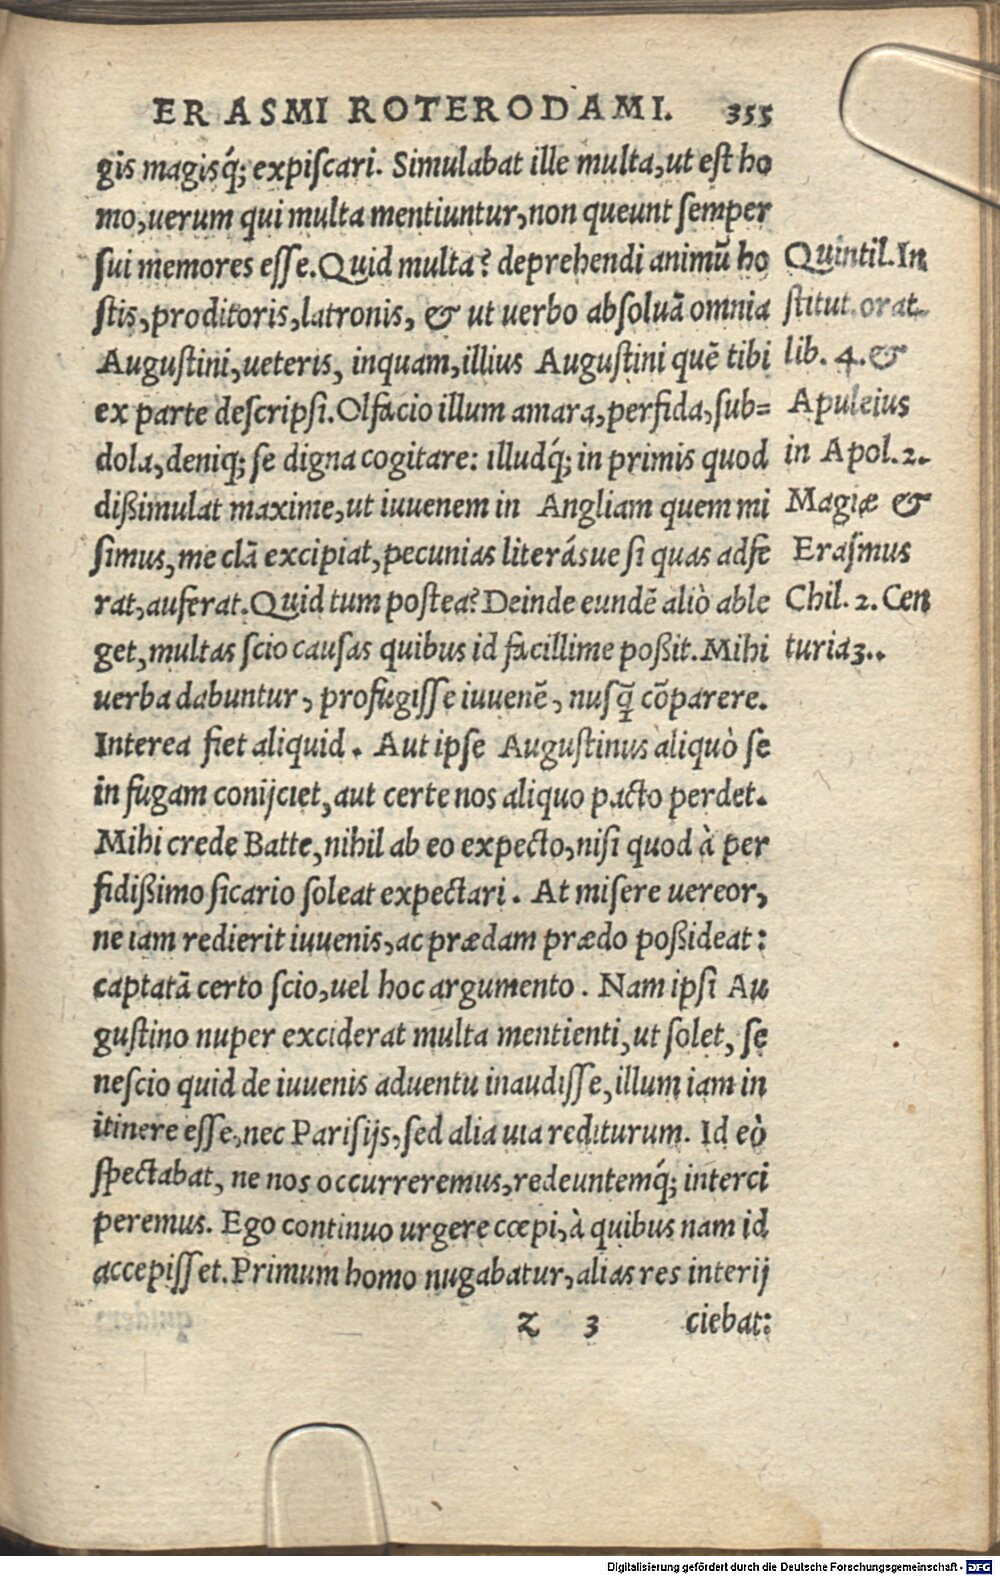 ERASMI ROTERODAMI. 355
gis magisq́; expiſcari. Simulabat ille multa, ut eſt ho
mo, uerum qui multa mentiuntur, non queunt ſemper
ſui memores eſſe. Quid multa? deprehendi animũ ho
ſtis, proditoris, latronis, & ut uerbo abſoluã omnia
Auguſtini, ueteris, inquam, illius Auguſtini quẽ tibi
ex parte deſcripſi. Olfacio illum amara, perfida, ſub=
dola, deniq; ſe digna cogitare: illudq́; in primis quod
dißimulat maxime, ut iuuenem in Angliam quem mi
ſimus, me clã excipiat, pecunias literásue ſi quas adfe
rat, auferat. Quid tum poſtea? Deinde eundẽ aliò able
get, multas ſcio cauſas quibus id facillime poßit. Mihi
uerba dabuntur, profugiſſe iuuenẽ, nuſq̃ cõparere.
Interea fiet aliquid. Aut ipſe Auguſtinus aliquò ſe
in fugam conijciet, aut certe nos aliquo pacto perdet.
Mihi crede Batte, nihil ab eo expecto, niſi quod à per
fidißimo ſicario ſoleat expectari. At miſere uereor,
ne iam redierit iuuenis, ac prædam prædo poßideat:
captatã certo ſcio, uel hoc argumento. Nam ipſi Au
guſtino nuper exciderat multa mentienti, ut ſolet, ſe
neſcio quid de iuuenis aduentu inaudiſſe, illum iam in
itinere eſſe, nec Pariſijs, ſed alia uia rediturum. Id eò
ſpectabat, ne nos occurreremus, redeuntemq́; interci
peremus. Ego continuo urgere cœpi, à quibus nam id
accepiſſet. Primum homo nugabatur, alias res interij
z 3 ciebat:
Quintil. In
ſtitut. orat.
lib. 4. &
Apuleius
in Apol. 2.
Magiæ &
Eraſmus
Chil. 2. Cen
turia 3..
Digitalisierung gefördert durch die Deutsche Forschungsgemeinschaft - DFG